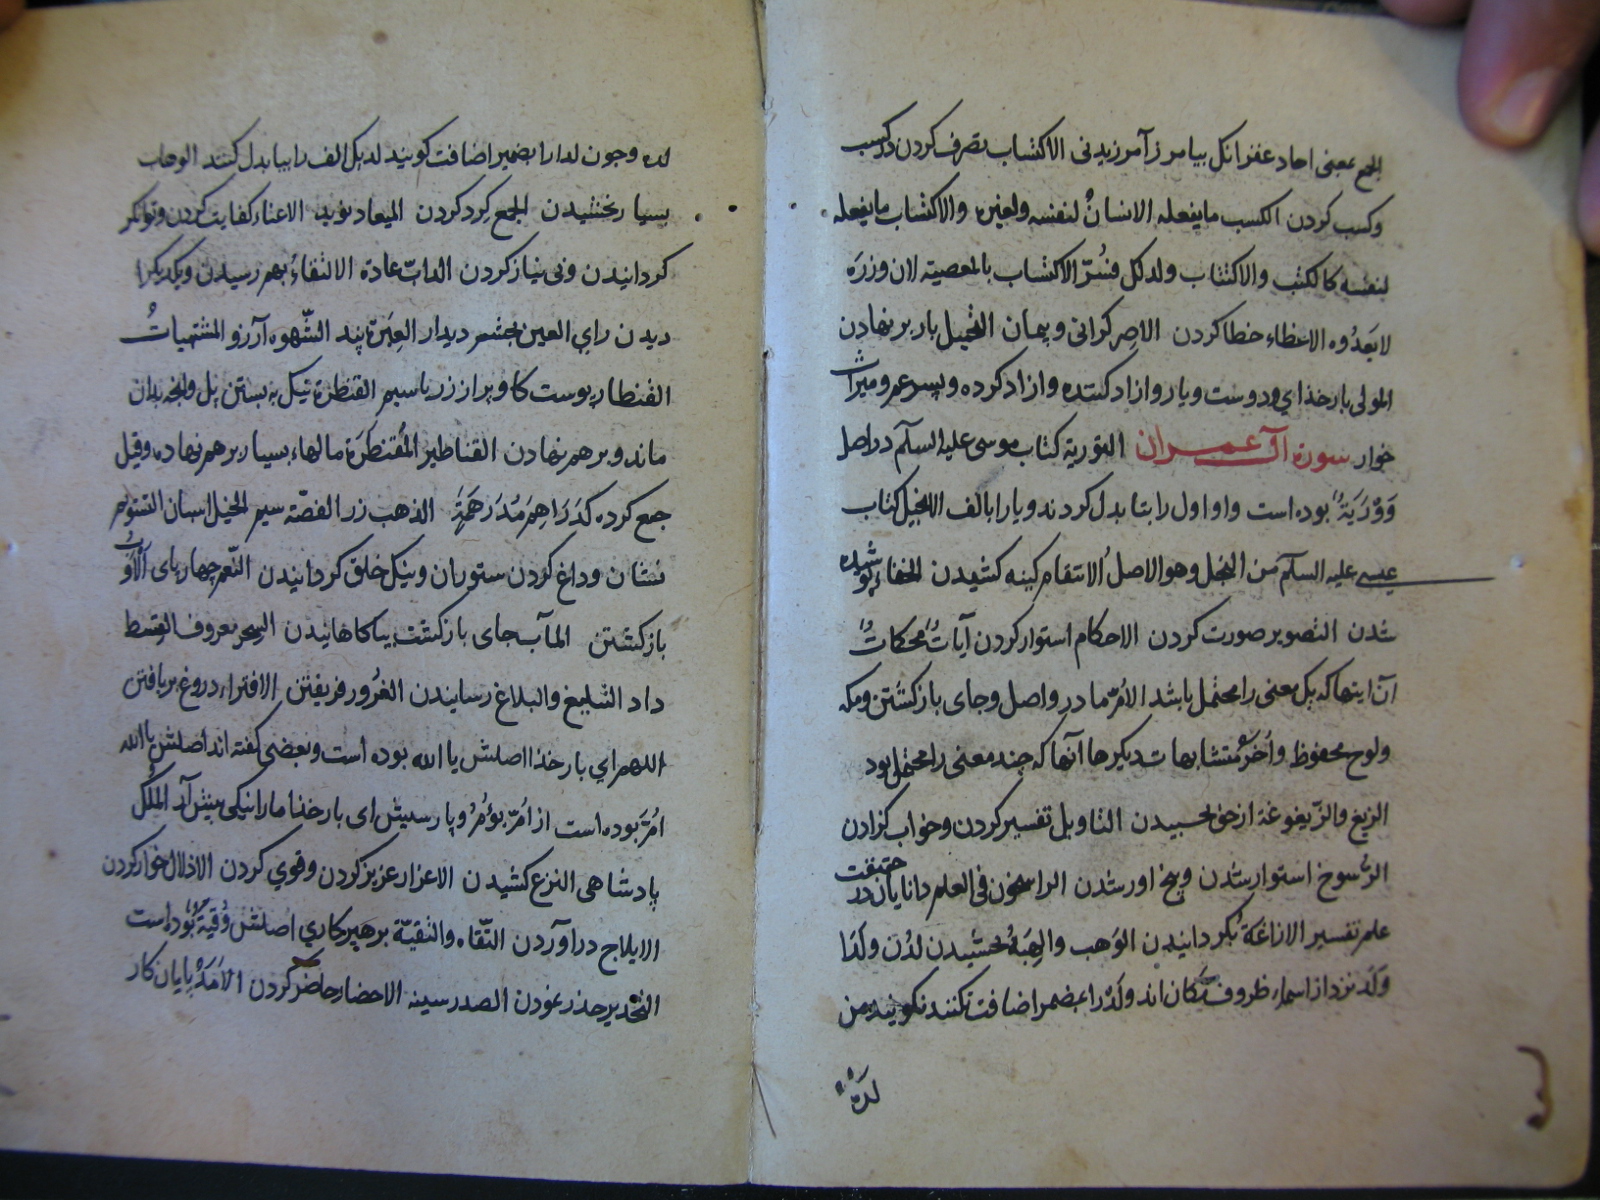 الجمع بمعنی احاد غفرانک بیامرز آمرزیدنی الاکتساب تصرف کردن در کسب
وکسب کردن الکسب مایفعله الانسان لنفسه ولغیره والاکتساب مایفعله
لنفسه کالکتب والاکتتاب ولذلک فسّر الاکتساب بالمعصیة لان وزره
لا یعدوه الاخطاء خطا کردن الاصر کرانی و پیمان التحمیل بار بر نهادن
المولی بار خذای ودوست ویار وازاد کننده وازاد کرده وپسر عم ومیراث
خوار سورة آل عمران التوریة کتاب موسی علیه السلم در اصل
وَوْرَیَةٌ بوده است واو اول را بتا بدل کردند ویا را بالف الانجیل کتاب
عیسی علیه السلم من النجل وهو الاصل الانتقام کینه کشیدن الخفاء پوشیده
شدن التصویر صورت کردن الاحکام استوار کردن آیاتٌ محکماتٌ
آن ایتها که یک معنی را محتمل باشد الامّ مادر واصل وجای بازکشتن ومکه
ولوح محفوظ واُخَر متشابهات دیکرها آنها که چند معنی را محتمل بود
الزیغ والزیغوغة از حق بحسبیدن التاویل تفسیر کردن وخواب کزاردن
الرّسوخ استوار شدن وبیخ اور شدن الراسخون فی العلم دانایان در حقیقت
علم تفسیر الازاغة بکردانیدن الوَهب والهِبَةُ بخشیدن لدُن ولَدَا
ولَد نزد از اسماء ظروف مکان اند ولَدْ را بمضمر اضافت نکنند نکویند من
لَدِهِ
لده وچون لدا را بضمیر اضافت کویند لدیک الف را بیا بدل کنند الوهاب
بسیار بخشیدن الجمع کرد کردن المیعاد نوید الاغناء کفایت کردن وتوانکر
کردانیدن وبی نیاز کردن الداب عادة الالتقاءُ بهم رسیدن ویکدیکر را
دیدن رای العین بچشم دیدار العِبَرة پند الشّهوه آرزو المشتهیاتُ
القنطار پوست کاو پر از زر یا سیم القنطرة پل بستن
ماند وبر هم نهادن القناطیر المُقَنطَرَة مالهاء بسیار بر هم نهاده وقیل
جمع کرده کدَرَاهِمَ مُدَرهَمَةٍ الذهب زر الفضّة سیم الخیل اسبان التسویم
نشان وداغ کردن ستوران ونیک خلق کردانیدن النّعم چهار پای الاَوبُ
بازکشتن المآب جای بازکشت السحر معروف القسط
داد التبلیغ والبلاغ رسانیدن الغُرُور فریفتن الافتراء دروغ بر بافتن
اللهم ای بار خذا اصلش یا الله بوده است وبعضی کفته اند اصلش یا الله
اُمّ بوده است از اَمّ یؤمُّ وپارسیش ای بار خذا ما را نیکی پیش آر المُلک
پادشاهی النزع کشیدن الاعزاز عزیز کردن وقوی کردن الاذلال خوار کردن
الایلاج دراوردن التّقاه والتقیّة پرهیزکاری اصلش وُقَیَةٌ بوداست
التحذیر حذر نمودن الصدر سینه الاحضار حاضر کردن الاَمَدُ پایان کار